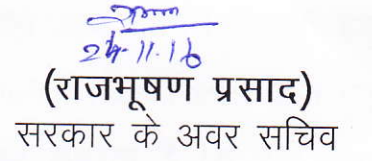 24.11.16
(राजभूषण प्रसाद)
सरकार के अवर सचिव